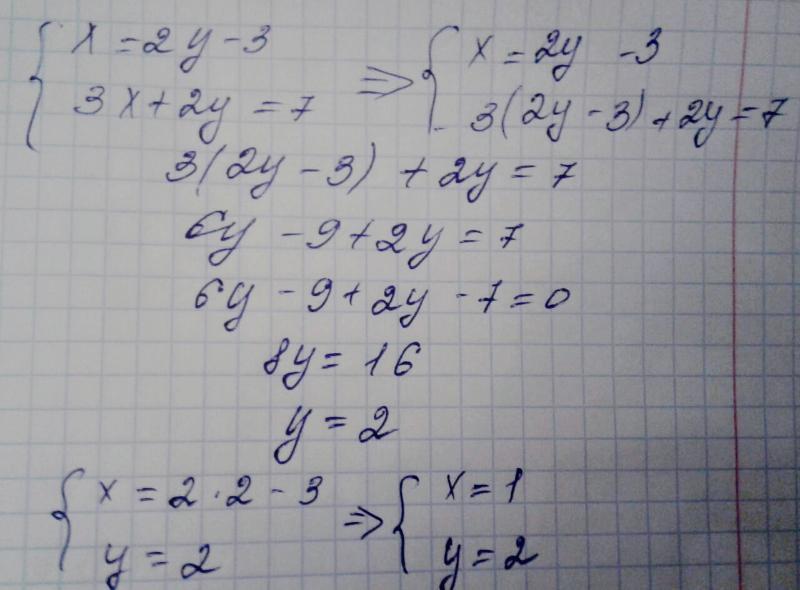 { x = 2y - 3 ⇒ { x = 2y - 3
3x + 2y = 7 3(2y - 3) + 2y = 7
3(2y - 3) + 2y = 7
6y - 9 + 2y = 7
6y - 9 + 2y - 7 = 0
8y = 16
y = 2
{ x = 2 · 2 - 3 ⇒ { x = 1
y = 2 y = 2